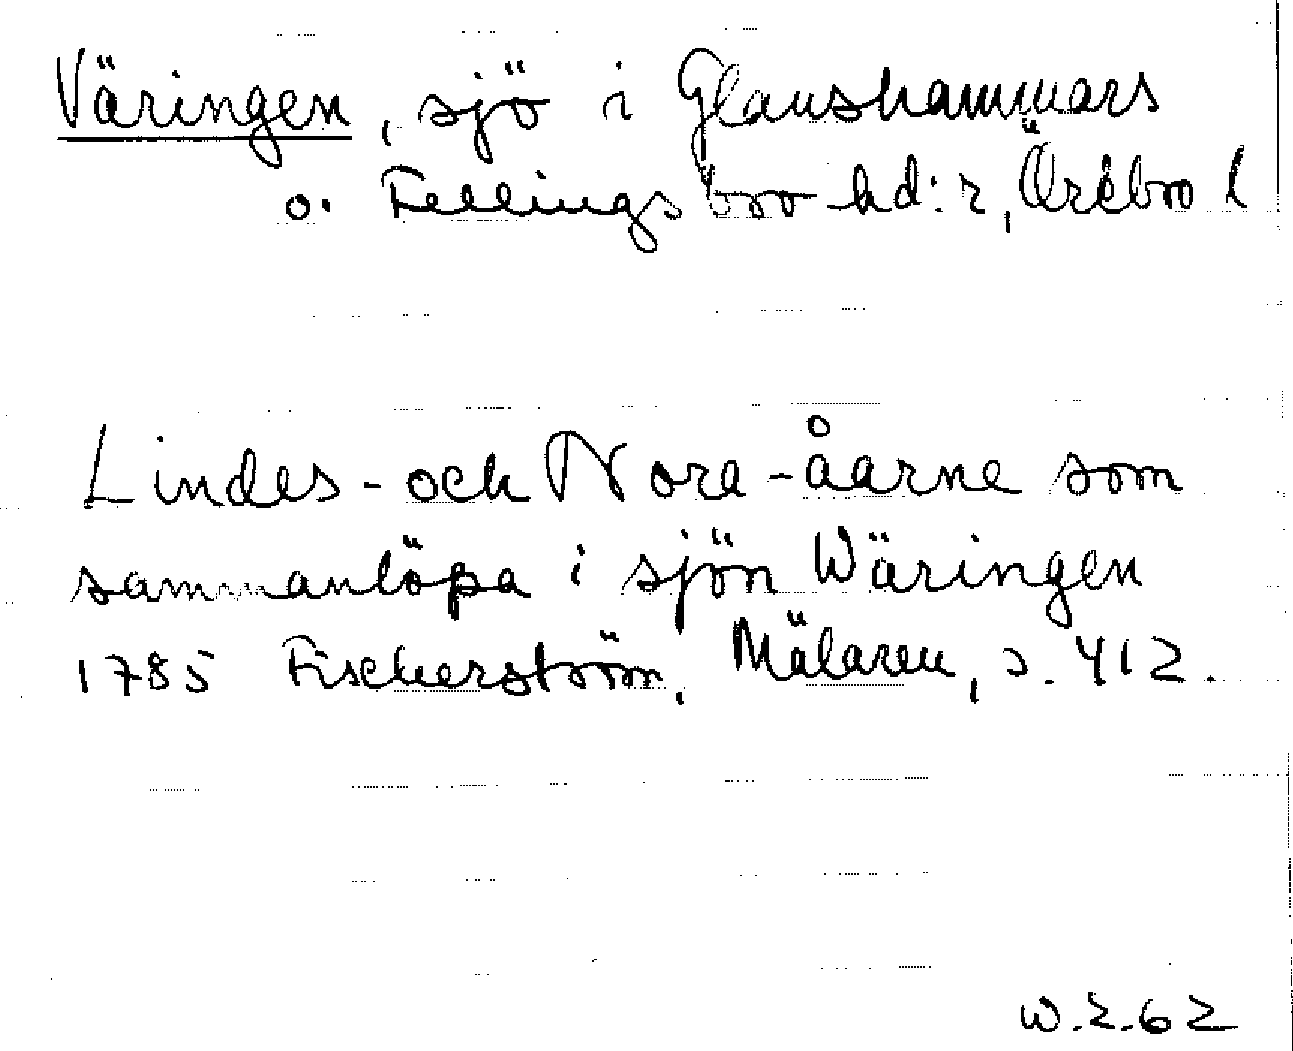 Väringen, sjö i Glanshammars
o. Fellingsbro hd:r, Örebro l
Lindes- och Nora-åarne som
sammanlöpa i sjön Wäringen
1785 Fischerström, Mälaren, s. 412.
W.Z.62